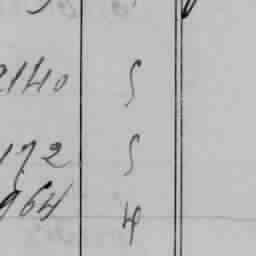 2140 5
172 5
964 4